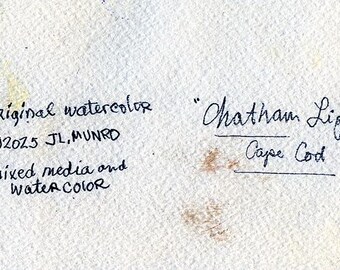 riginal watercolor
©2025 JL, MUNRO
mixed media and
WATERCOLOR
"Chatham Lig
Cape Cod